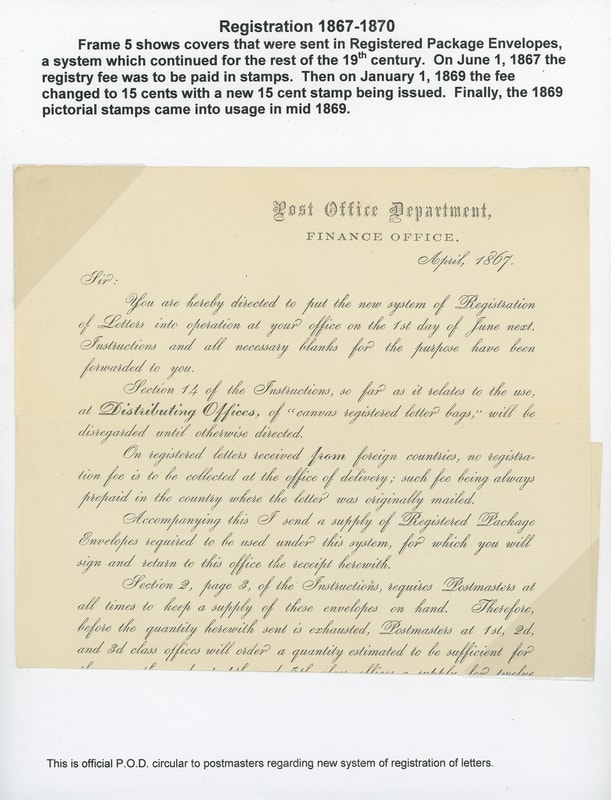 Registration 1867-1870
Frame 5 shows covers that were sent in Registered Package Envelopes,
a system which continued for the rest of the 19th century. On June 1, 1867 the
registry fee was to be paid in stamps. Then on January 1, 1869 the fee
changed to 15 cents with a new 15 cent stamp being issued. Finally, the 1869
pictorial stamps came into usage in mid 1869.
Post Office Department,
FINANCE OFFICE,
April, 1867.
Sir:
You are hereby directed to put the new system of Registration
of Letters into operation at your office on the 1st day of June next.
Instructions and all necessary blanks for the purpose have been
forwarded to you.
Section 14 of the Instructions, so far as it relates to the use,
at Distributing Offices, of "canvas registered letter bags," will be
disregarded until otherwise directed.
On registered letters received from foreign countries, no registra-
tion fee is to be collected at the office of delivery; such fee being always
prepaid in the country where the letter was originally mailed.
Accompanying this I send a supply of Registered Package
Envelopes required to be used under this system, for which you will
sign and return to this office the receipt herewith.
Section 2, page 3, of the Instructions, requires Postmasters at
all times to keep a supply of these envelopes on hand. Therefore,
before the quantity herewith sent is exhausted, Postmasters at 1st, 2d,
and 3d class offices will order a quantity estimated to be sufficient for
This is official P.O.D. circular to postmasters regarding new system of registration of letters.